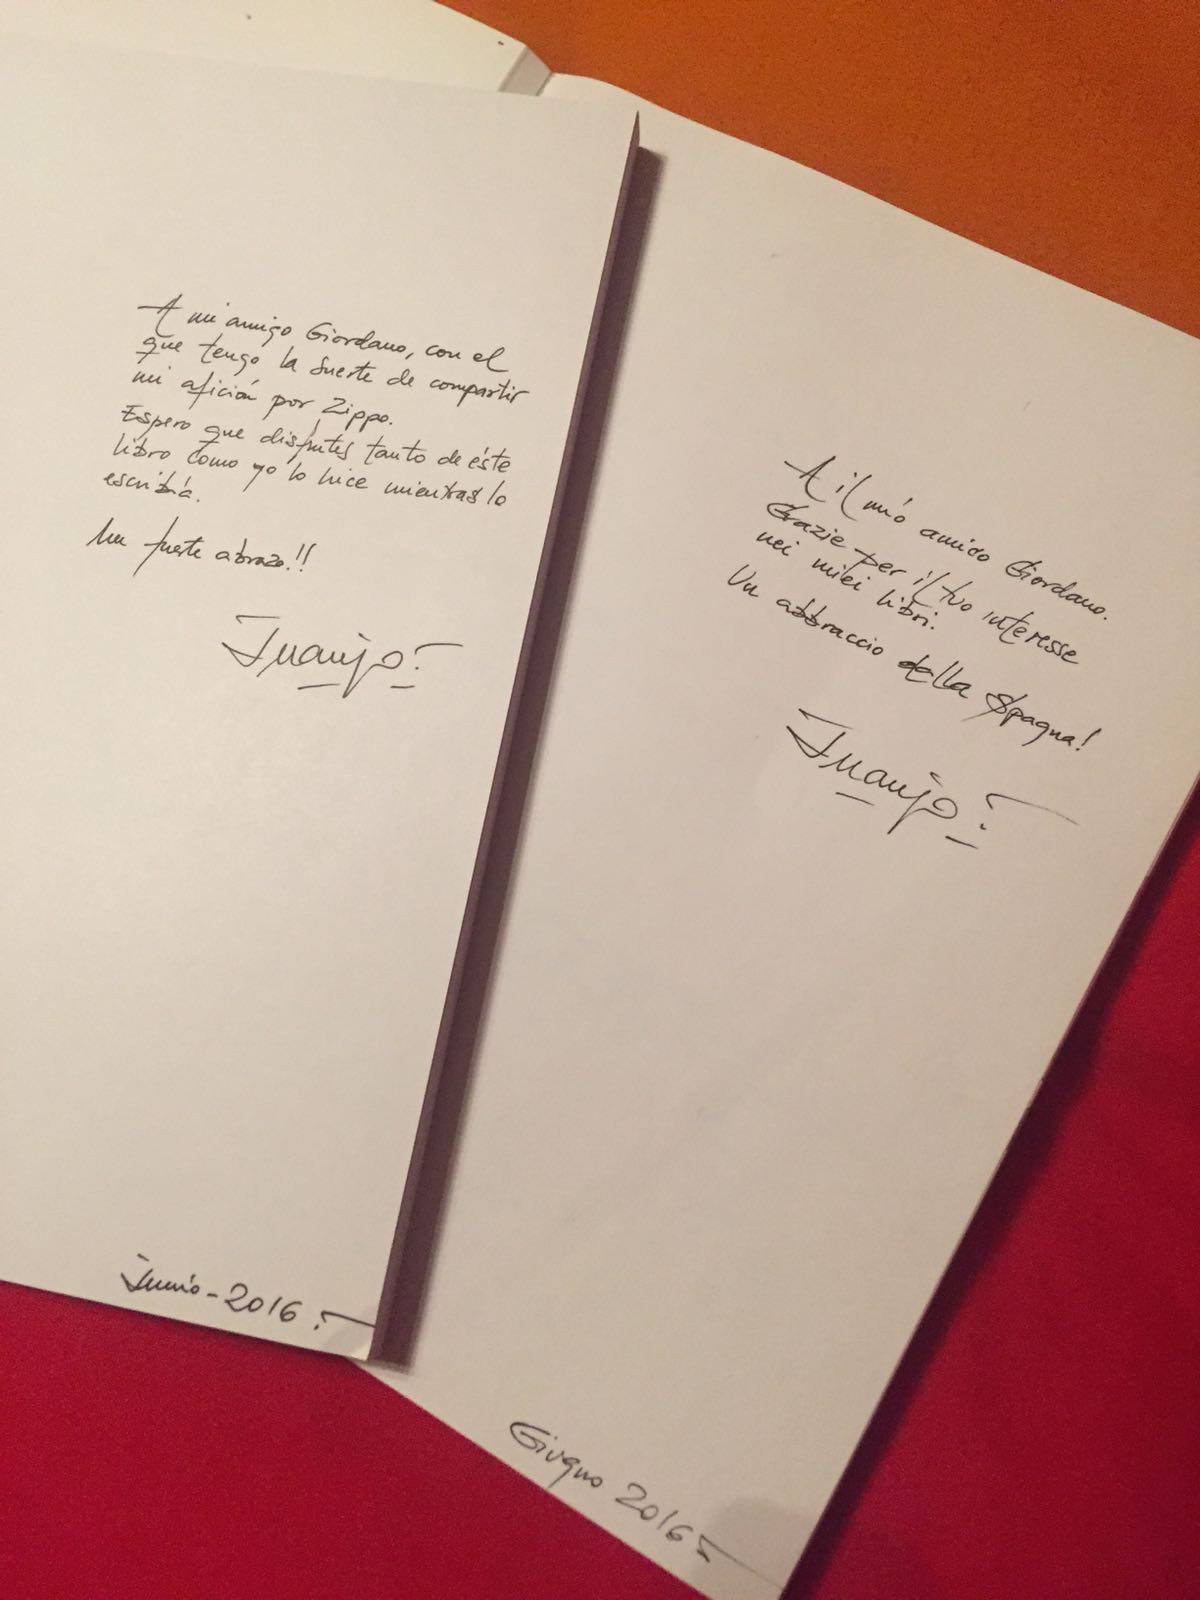 A mi amigo Giordano, con el
que tengo la suerte de compartir
mi afición por Zippo.
Espero que disfrutes tanto de éste
libro como yo lo hice mientras lo
escribía.
Un fuerte abrazo!!
Juanjo
Junio-2016
A il mio amico Giordano.
Grazie per il tuo interesse
nei miei libri.
Un abbraccio della Spagna!
Juanjo
Giugno 2016